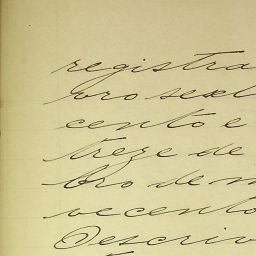 registra
vro sext
cento e
treze de
bro de n
vecento
O escriv